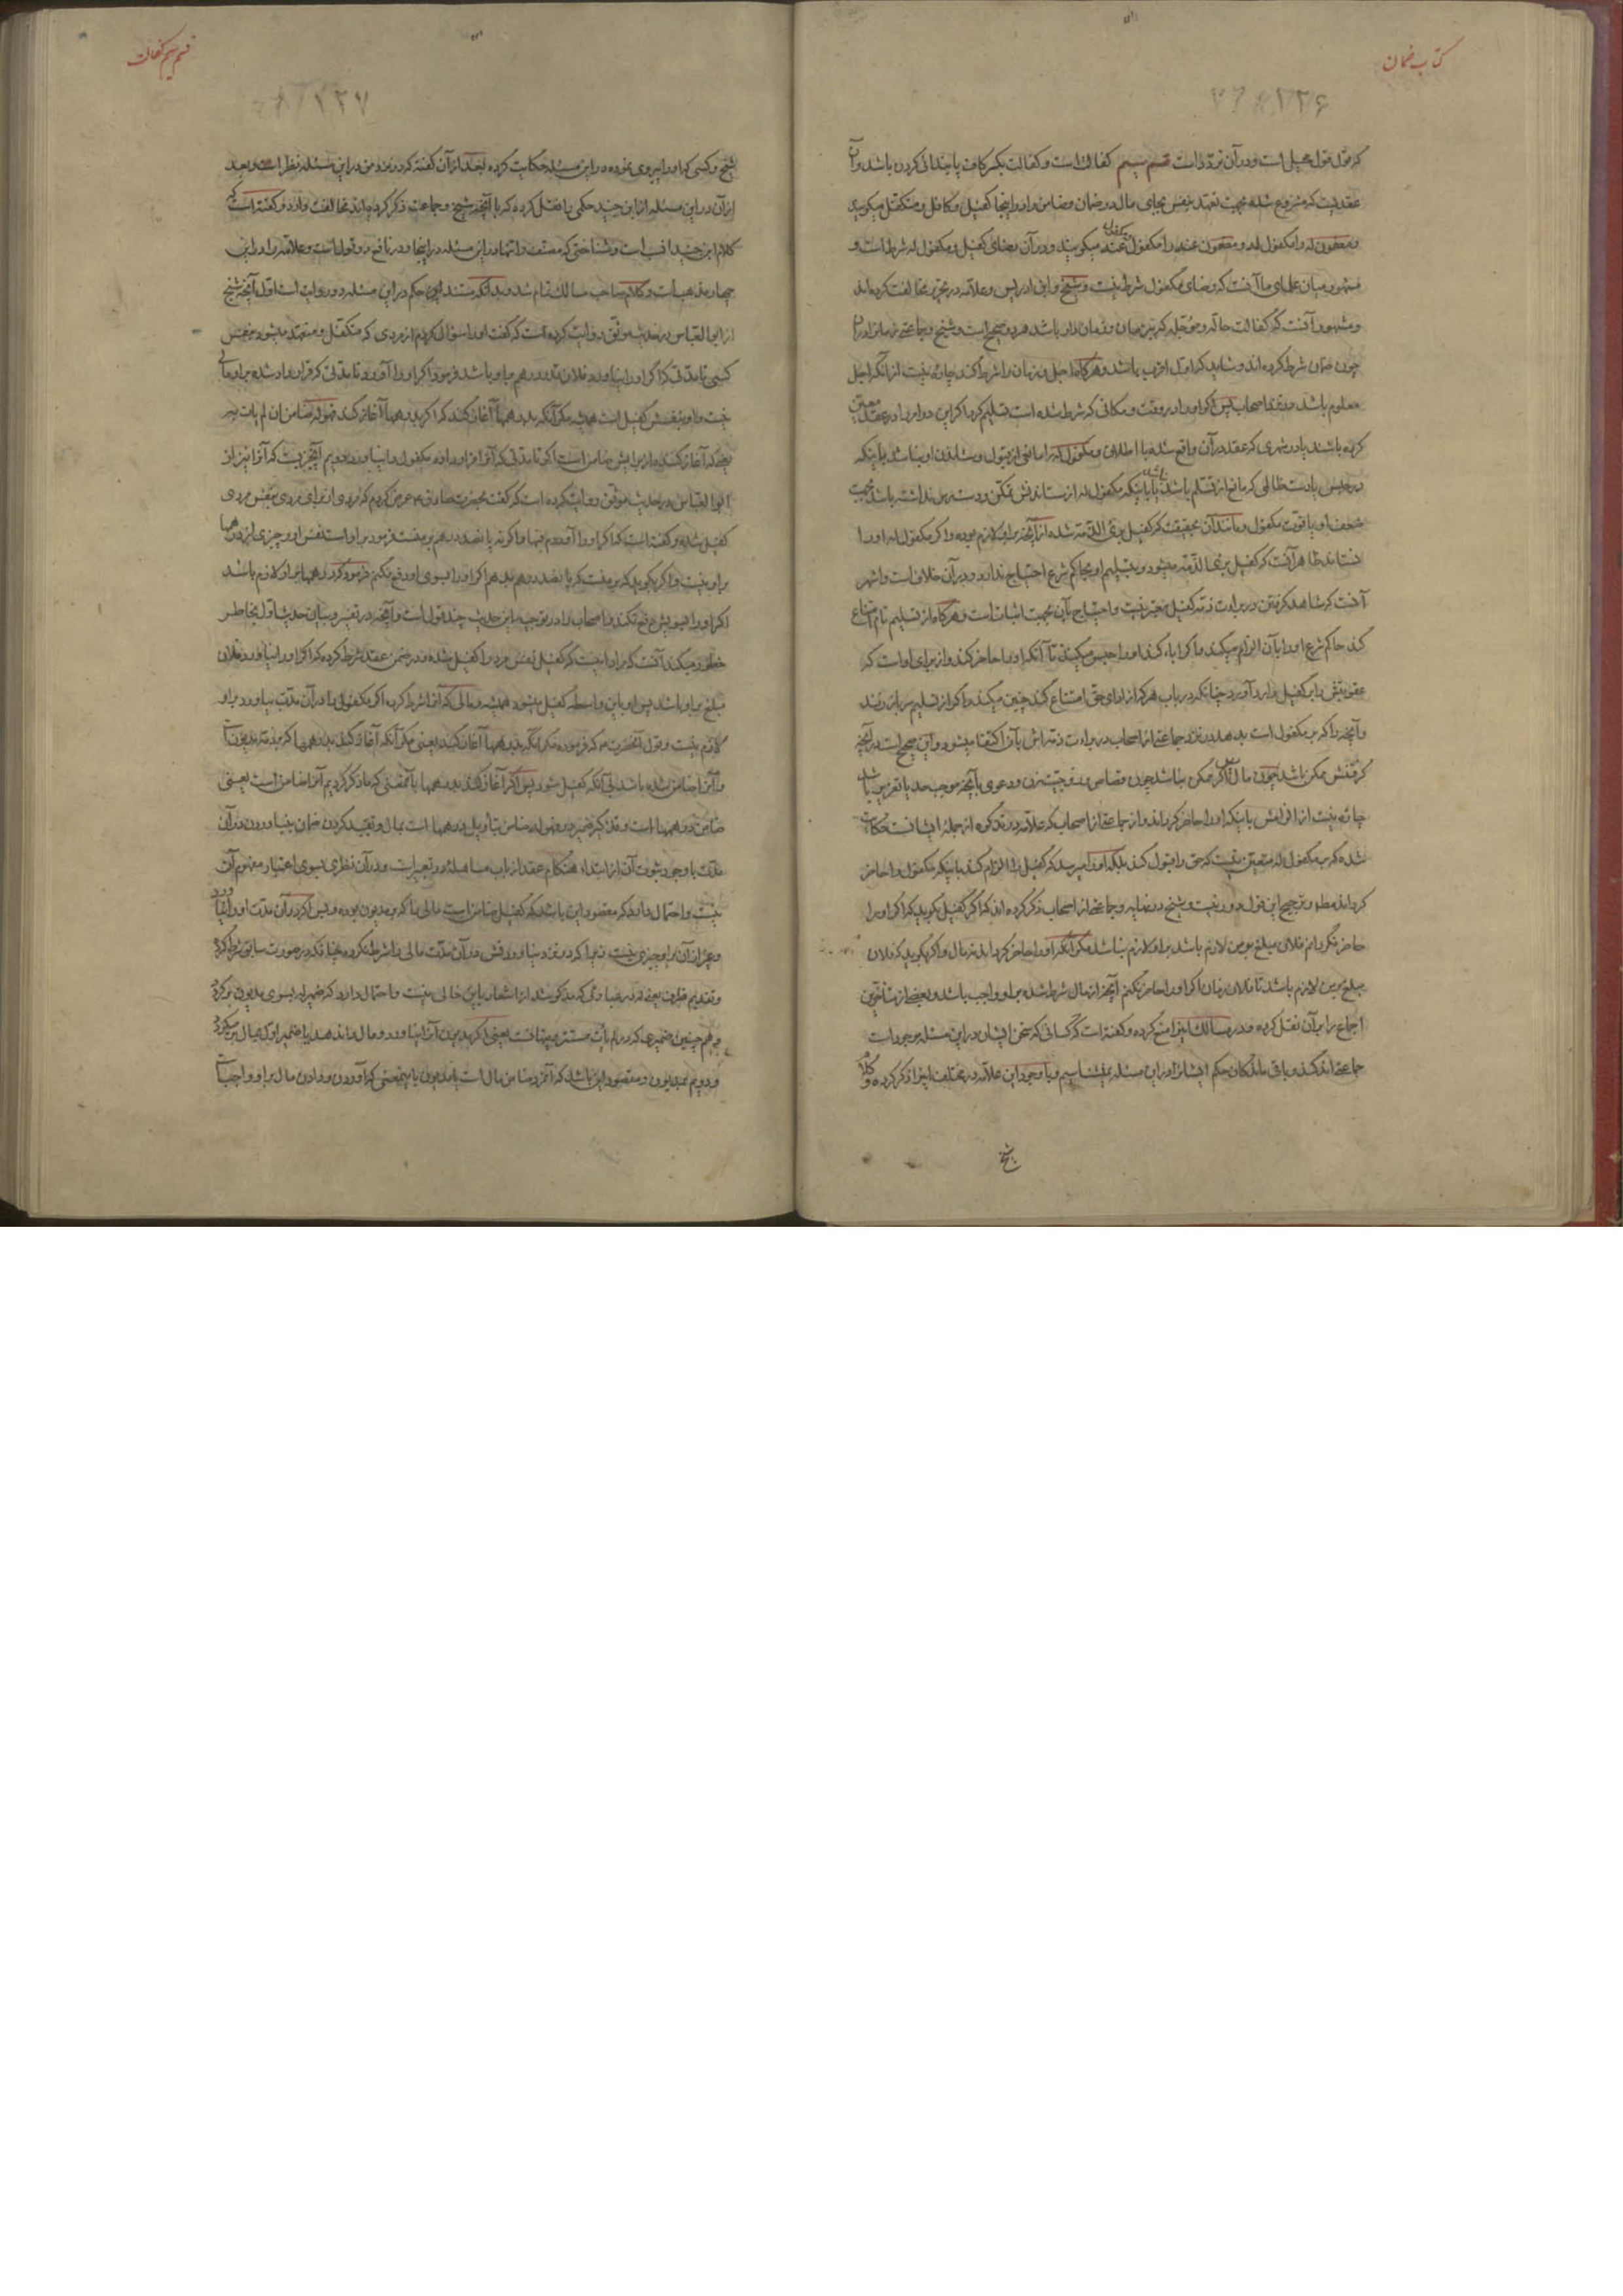 کتاب ضمان
۱۲۶
که قول قول محیل است و در آن تردّد است قسم سیم کفالت است و کفالت بکسر کاف پایندانی کردن باشد و آن
عقدیست که مشروع شده بجهت تعهّد بنفس بجای مال در ضمان و ضامن را در اینجا کفیل و کافل و متکفل میگویند
و مضمون له را مکفول له و مضمون عنه را مکفول عنه میگویند و در آن رضای کفیل و مکفول له شرط است و
مشهور میان علمای ما آنست که رضای مکفول شرط نیست و شیخ و ابن ادریس و علامه در تحریر مخالفت کرده‌اند
و مشهور آنست که کفالت حالّه و مؤجّله که زمان باشد هر دو صحیح است و شیخ و جماعتی
چون ضمان شرط کرده اند و شاید که اول اقرب باشد و هرگاه اجل و زمان را شرط کند چاره نیست از آنکه اجل
معلوم باشد و نزد اصحاب پس اگر او را در وقت و مکانی که شرط شده است تسلیم کرد
کرده باشند یا در شهری که عقد در آن واقع شده با اطلاق و مکفول له را مانعی از قبول و نباشد باینکه
در حبس یا دست ظالمی که مانع از تسلّم باشد یا باینکه مکفول له از ستاندنش تمکّن و دسترس نداشته باشد بجهت
ضعف او یا قوّت مکفول و مانند آن بحقیقت که کفیل بریّ الذّمّه شده از آنچه بر او لازم بوده و اگر مکفول له او را
نستاند ظاهر آنست که کفیل بریّ الذّمّه میشود و بتسلیم او بحاکم شرع احتیاج ندارد و در آن خلاف است و اشهر
آنست که شاهد گرفتن در براءت ذمّه کفیل معتبر نیست و احتیاج بآن بجهت اثبات است و هرگاه از تسلیم تام امتناع
کند حاکم شرع او را بآن الزام میکند و اگر اباء کند او را حبس میکند تا آنکه او را حاضر کند و از برای او است که
عقوبتش را بر کفیل وارد آورد چنانکه در باب هر که از ادای حق امتناع کند چنین میکند و اگر از تسلیم سر باز زند
و آنچه را که بر مکفول است بدهد نزد جماعتی از اصحاب در براءت ذمّه اش بآن اکتفا میشود و این صحیح است در آنچه
گرفتنش ممکن باشد چون مال و اگر ممکن نباشد چون قصاص و زوجیّت زن و دعوی بآنچه موجب حد یا تعزیر باشد
چاره نیست از الزامش باینکه او را حاضر گرداند و از جماعتی از اصحاب که علامه در تذکره از جمله ایشانست حکایت
شده که بر مکفول له متعیّن نیست که حق را قبول کند بلکه او را میرسد که کفیل را الزام کند باینکه مکفول را حاضر
گرداند مطلقا و ترجیح این قول دور نیست و شیخ در نهایه و جماعتی از اصحاب ذکر کرده اند که اگر کفیل بگوید که اگر او را
حاضر نگردانم فلان مبلغ بر من لازم باشد بر او لازم نباشد مگر آنکه او را حاضر گرداند نه مال و اگر بگوید که فلان
مبلغ بر من لازم باشد تا فلان زمان اگر او را حاضر نکنم آنچه از مال شرط شده بر او واجب باشد و بعضی از متأخّرین
اجماع را بر آن نقل کرده و در مسالک اینرا منع کرده و گفته است که کسانی که سخن ایشان در این مسئله موجود است
جماعتی اندکند و باقی ماندگان حکم ایشانرا در این مسئله نمیشناسیم و با وجود این علامه در مختلف اینرا ذکر کرده و کلام
شیخ
قسم سیم کفالت
۱۲۷
شیخ و کسی که او را پیروی نموده در این مسئله حکایت کرده بعد از آن گفته که در نزد من در این مسئله نظر است و بعد
از آن در این مسئله از ابن جنید حکمی را نقل کرده که با آنچه شیخ و جماعت ذکر کرده‌اند مخالفت دارد و گفته است که
کلام ابن جنید انسب است و شناختی که مصنف را تنها در این مسئله در اینجا و در نافع دو قول است و علامه را در این
چهار مذهب است و کلام صاحب مسالک تمام شد و بدانکه مستند این حکم در این مسئله دو روایت است اول آنچه شیخ
از ابو العباس در حدیث موثّق روایت کرده است که گفت او را سؤال کردم از مردی که متکفل و متعهد میشود بنفس
کسی تا مدّتی که اگر او را نیاورد فلان قدر درهم بر او باشد فرمود اگر او را آورد تا مدّتی که قرارداد شده بر او مالی
نیست و او بنفسش کفیل است همیشه مگر آنکه بدرهمها آغاز کند که اگر بدرهمها آغاز کند فهو له ضامن ان لم یأت به
یعنی که آغاز کند از برایش ضامن است اگر تا مدّتی که آنرا قرار داده مکفول را نیاورد دویم آنچیزیست که آنرا نیز از
ابو العباس در حدیث موثّق روایت کرده است که گفت بحضرت صادق ع عرض کردم که مردی از برای مردی بنفس مردی
کفیل شده و گفته است که اگر او را آوردم فبها و اگر نه پانصد درهم بر منست فرمود بر اوست نفس او و چیزی از درهمها
بر او نیست و اگر بگوید که بر منست که پانصد درهم بدهم اگر او را بسوی او دفع نکنم فرمود که درهمها بر او لازم باشد
اگر او را بسویش دفع نکند و اصحاب را در توجیه این حدیث چند قول است و آنچه در تفسیر و بیان حدیث اول بخاطر
خطور میکند آنست که مراد اینست که کفیل نفس مرد را کفیل شده و در ضمن عقد شرط کرده که اگر او را نیاورد فلان
مبلغ بر او باشد پس او باین واسطه کفیل میشود همیشه و مالی که آنرا شرط کرده اگر مکفول را در آن مدّت بیاورد بر او
لازم نیست و قول آنحضرت ع که فرموده مگر آنکه بدرهمها آغاز کند یعنی مگر آنکه آغاز کند بدرهمها که بذمّه مدیونست
و آنرا ضامن شده باشد بی آنکه کفیل شود پس اگر آغاز کند بدرهمها بآنمعنی که ما ذکر کردیم آنرا ضامن است یعنی
ضامن درهمها است و تذکیر ضمیر در قوله ضامن بتأویل درهمها است بمال و تقیید کردن ضمان بنیاوردن در آن
مدّت با وجود ثبوت آن از ابتداء هنگام عقد از باب مساهله در تعبیر است و در آن نظری بسوی اعتبار مفهوم آن
نیست و احتمال دارد که مقصود این باشد که کفیل ضامن است مالی را که بر مدیون بوده و پس اگر در آن مدّت او را نیاورد
و غیر از آن بر او چیزی نیست زیرا که در نیاوردنش در آن مدّت مالی را شرط نکرده چنانکه در صورت سابق شرط کرده
و تقدیم ظرف یعنی له در عبارتی که مذکور شد از اشعار باین خالی نیست و احتمال دارد که ضمیر له بسوی مدیون برگردد
و همچنین ضمیری که در لم یأت مستتر و پنهانست یعنی اگر مدیون آنرا نیاورد و مال را ندهد یا ضمیر اول بمال برگردد
و دویم بمدیون و مقصود این باشد که آنمرد ضامن مال است یا مدیون باینمعنی که آوردن و دادن مال بر او واجبست